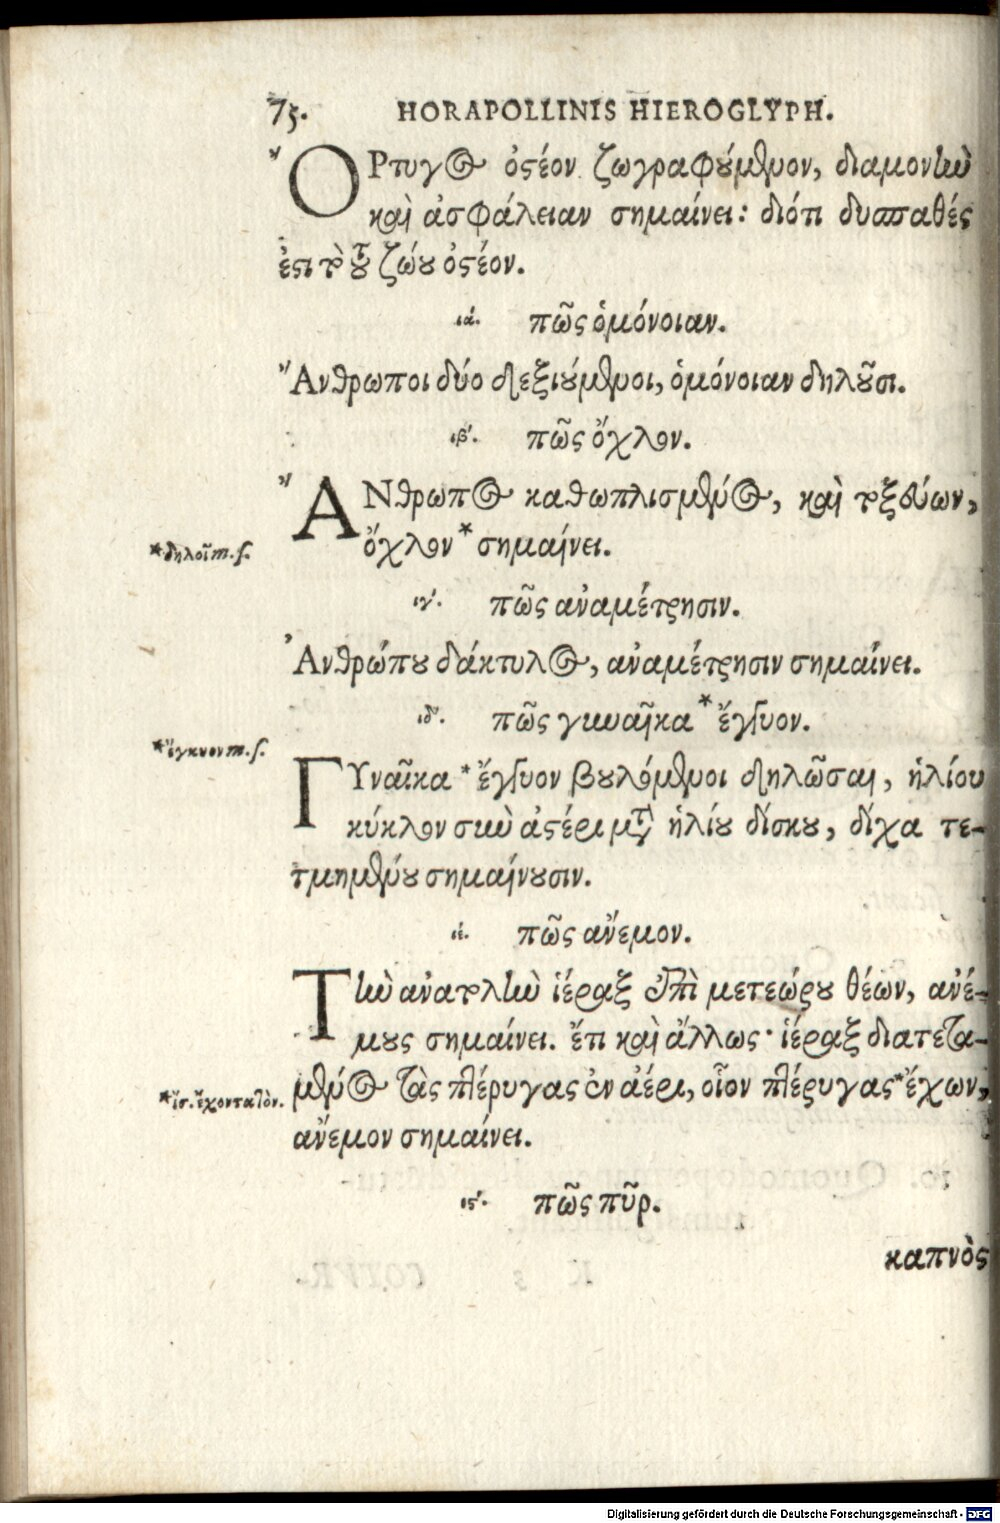 75. HORAPOLLINIS HIEROGLYPH.
Ὄρτυγος ὀστέον ζωγραφούμενον, διαμονὴν
καὶ ἀσφάλειαν σημαίνει: διότι δυσπαθές
ἐστι τὸ τοῦ ζώου ὀστέον.
ιά. πῶς ὁμόνοιαν.
Ἄνθρωποι δύο δεξιούμενοι, ὁμόνοιαν δηλοῦσι.
ιβ´. πῶς ὄχλον.
ἌΝθρωπος καθωπλισμένος, καὶ τοξεύων,
ὄχλον* σημαίνει.
*δηλοῖ m. s.
ιγ´. πῶς ἀναμέτρησιν.
Ἀνθρώπου δάκτυλος, ἀναμέτρησιν σημαίνει.
ιδ´. πῶς γυναῖκα *ἔγγυον.
*ἔγκυον m. s.
ΓΥναῖκα *ἔγγυον βουλόμενοι δηλῶσαι, ἡλίου
κύκλον σὺν ἀστέρι μετὰ ἡλίου δίσκου, δίχα τε-
τμημένου σημαίνουσιν.
ιέ. πῶς ἄνεμον.
Τὴν ἀνατολὴν ἱέραξ ἐπὶ μετεώρου θέων, ἀνέ-
μους σημαίνει. ἔτι καὶ ἄλλως· ἱέραξ διατετα-
μένος τὰς πτέρυγας ἐν ἀέρι, οἷον πτέρυγας *ἔχων,
*ἴσ. ἔχοντα τὸν.
ἄνεμον σημαίνει.
ις´. πῶς πῦρ.
καπνὸς
Digitalisierung gefördert durch die Deutsche Forschungsgemeinschaft - DFG